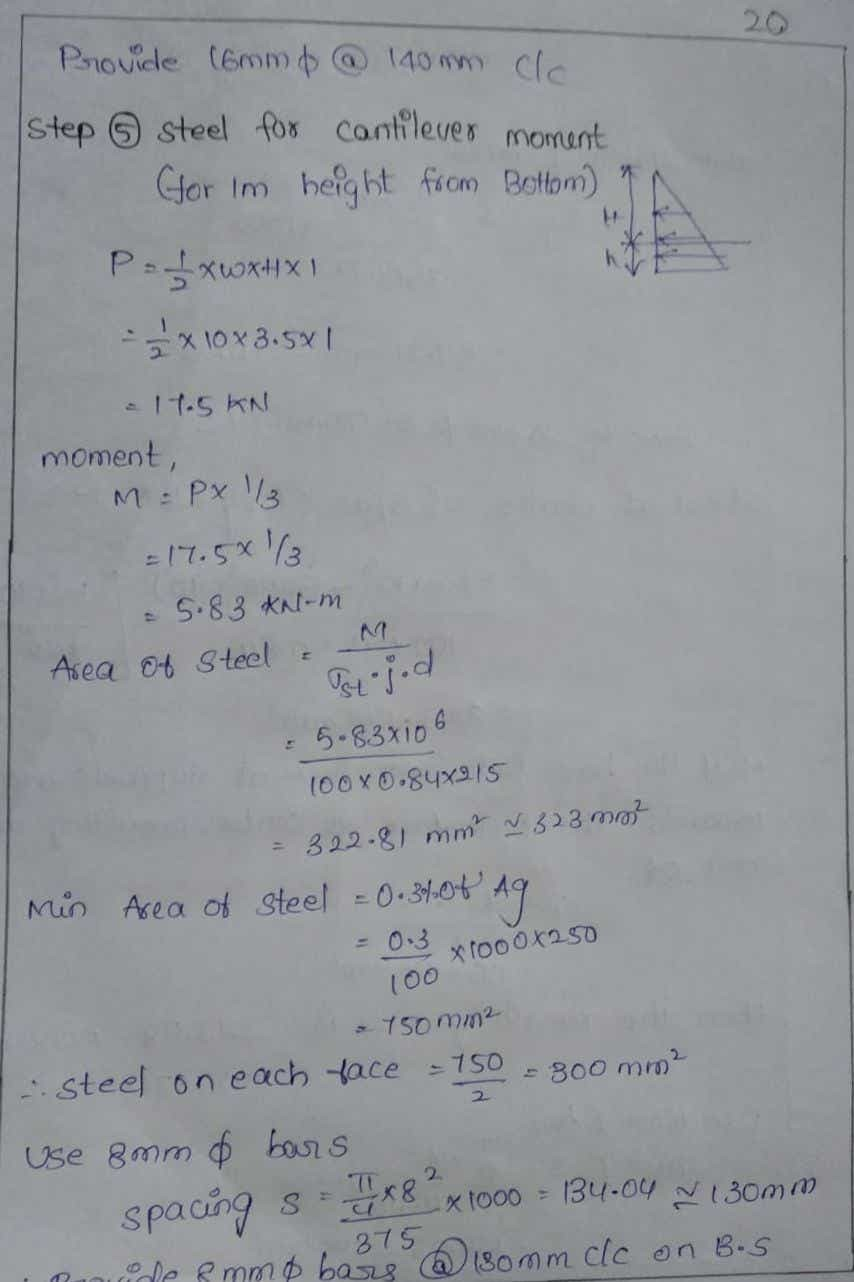 20
Provide 16mm ϕ @ 140 mm c/c
Step ⑤ steel for cantilever moment
(for 1m height from Bottom)
H
h
P = 1/2 × w × H × 1
= 1/2 × 10 × 3.5 × 1
= 17.5 KN
moment,
M = P × 1/3
= 17.5 × 1/3
= 5.83 KN-m
Area of steel = M / σst · j · d
= 5.83×10⁶ / 100 × 0.84 × 215
= 322.81 mm² ≃ 323 mm²
Min Area of steel = 0.3% of Ag
= 0.3/100 × 1000 × 250
= 750 mm²
∴ steel on each face = 750/2 = 300 mm²
Use 8mm ϕ bars
spacing s = π/4 × 8² / 375 × 1000 = 134.04 ≃ 130mm
Provide 8mm ϕ bars @ 130mm c/c on B.S